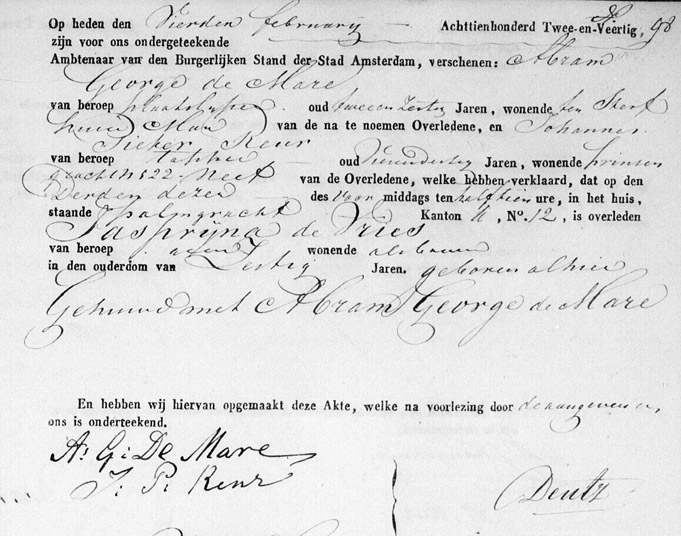 Op heden den Vierden february Achttienhonderd Twee-en-Veertig, 98
zijn voor ons ondergeteekende
Ambtenaar van den Burgerlijken Stand der Stad Amsterdam, verschenen: Abram
George de Mare
van beroep plaatslyper oud twee en Zestig Jaren, wonende ten Sterf
huize Man van de na te noemen Overledene, en Johannes
Pieter Keur
van beroep tapper oud Jaren, wonende prinsen
gracht N 522 Neef van de Overledene, welke hebben verklaard, dat op den
Derden dezer des Voor middags ten half tien ure, in het huis,
staande Palmgracht Kanton 4, No. 12, is overleden
Jasprijna de Vries
van beroep geen wonende als boven
in den ouderdom van Zestig Jaren. geboren alhier
Gehuwd met Abram George de Mare
En hebben wij hiervan opgemaakt deze Akte, welke na voorlezing door de aangevers en
ons is onderteekend.
A: G: De Mare
J: P: Keur
Deutz